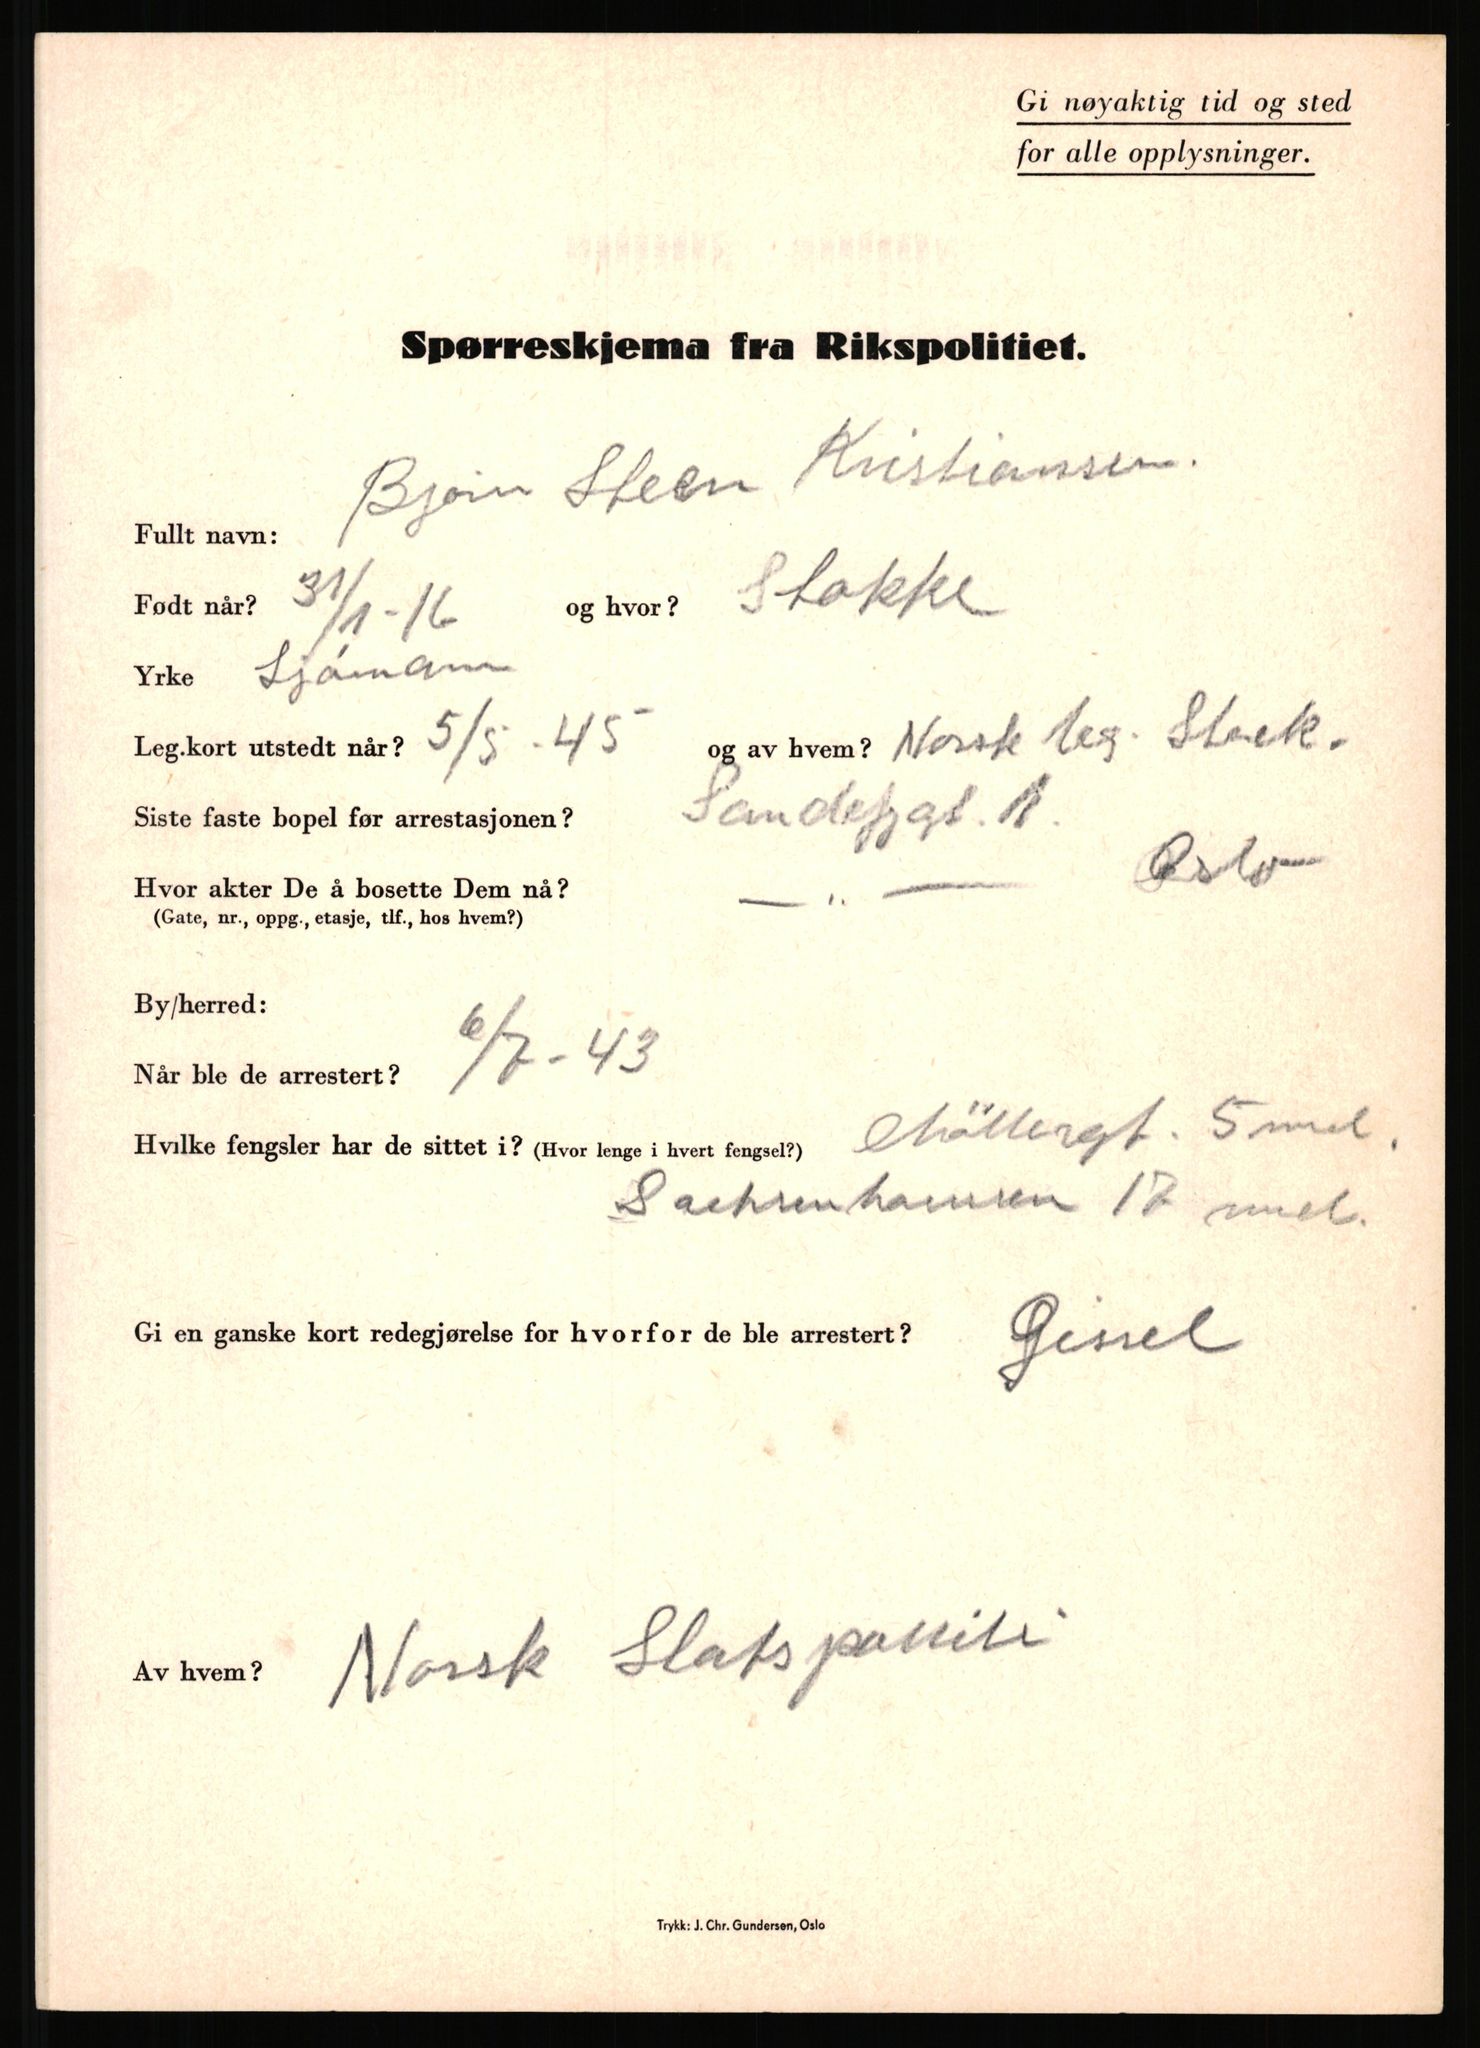 Gi nøyaktig tid og sted
for alle opplysninger.
Spørreskjema fra Rikspolitiet.
Fullt navn: Bjørn Steen Kristiansen.
Født når? 31/1-16 og hvor? Stokke
Yrke Sjömann
Leg.kort utstedt når? 5/5-45 og av hvem? Norsk leg. Stock.
Siste faste bopel før arrestasjonen? Sandefjgt.
Oslo
Hvor akter De å bosette Dem nå? — " —
(Gate, nr., oppg., etasje, tlf., hos hvem?)
By/herred:
Når ble de arrestert? 6/7-43
Hvilke fengsler har de sittet i? (Hvor lenge i hvert fengsel?) Möllergt. 5 mnd.
Sachsenhausen 17 mnd.
Gi en ganske kort redegjørelse for hvorfor de ble arrestert? Gissel
Av hvem? Norsk Statspolliti
Trykk: J. Chr. Gundersen, Oslo